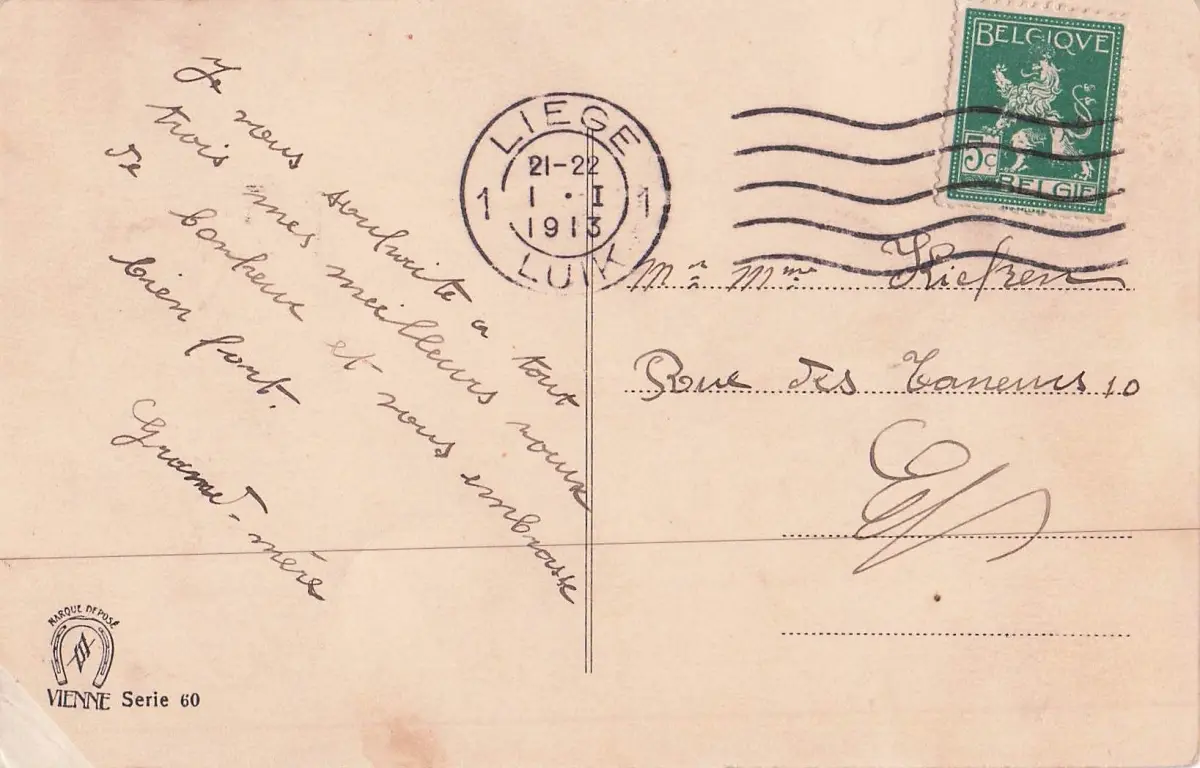 Je vous souhaite a tout
trois mes meilleurs voeux
de bonheur et vous embrasse
bien fort.
Grand-mère
MARQUE DEPOSÉ
VIENNE Serie 60
BELGIQVE
5c
BELGIE
LIEGE
21-22
1 1 · I 1
1913
LUIK
Mr Mme
Rue des Taneurs 10